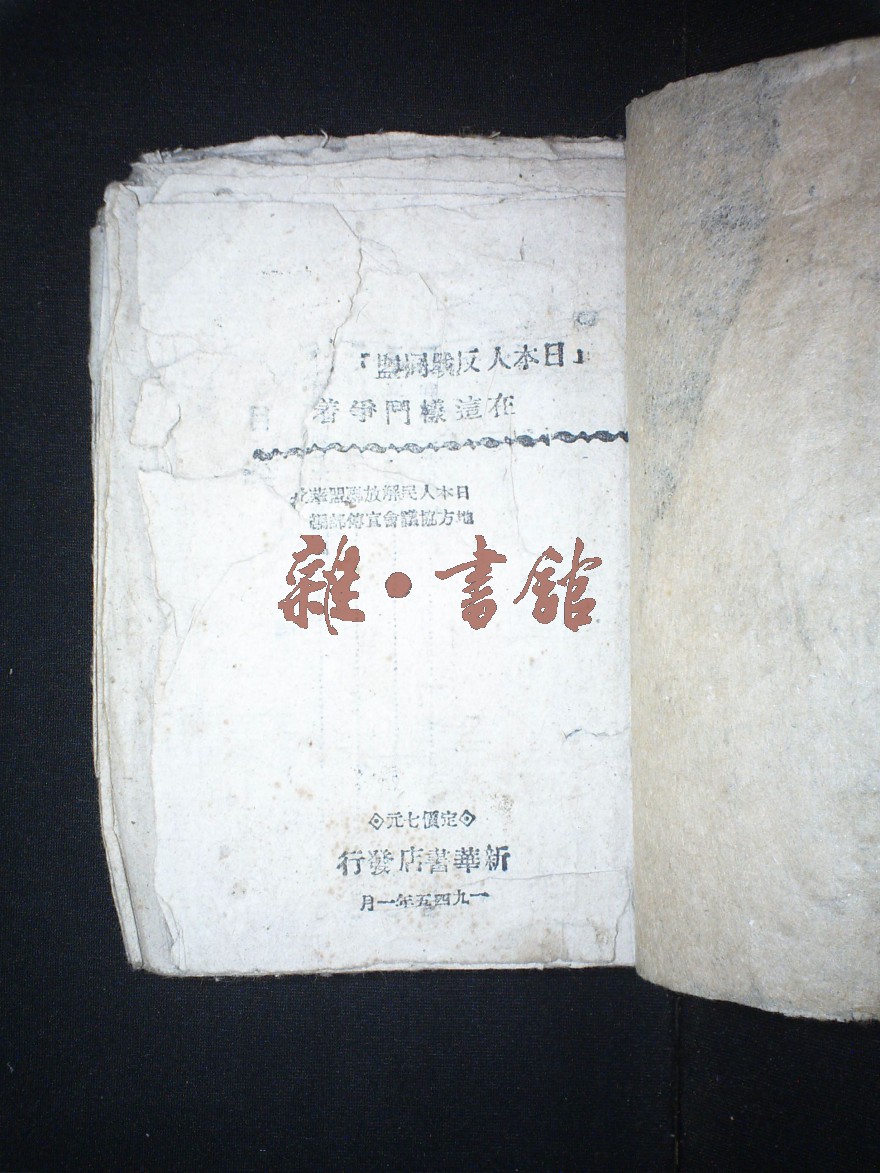 「日本人反戰同盟」
在這樣鬥爭着
日本人民解放聯盟華北
地方協議會宣傳部編
雜•書館
定價七元
新華書店發行
一九四五年一月